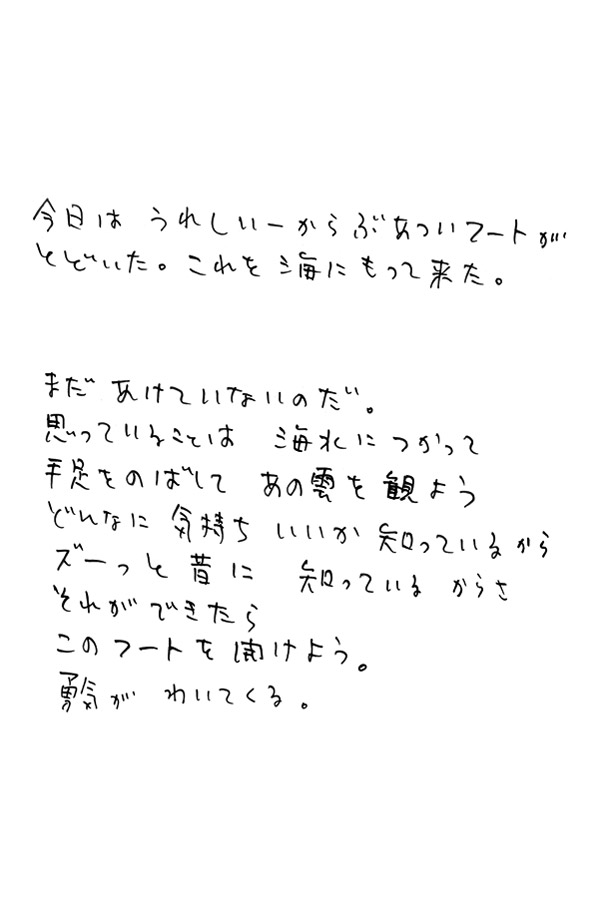 今日は うれしいーからぶあついフートが
とどいた。これを海にもって来た。
まだ あけていないのだ。
思っていることは 海水につかって
手足をのばして あの雲を観よう
どんなに気持ちいいか知っているから
ズーっと昔に 知っているからさ
それができたら
このフートを開けよう。
勇気が わいてくる。